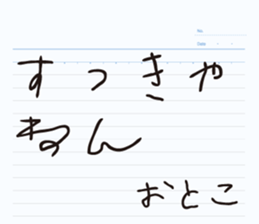 No.
Date
すつきや
ねん
おとこ